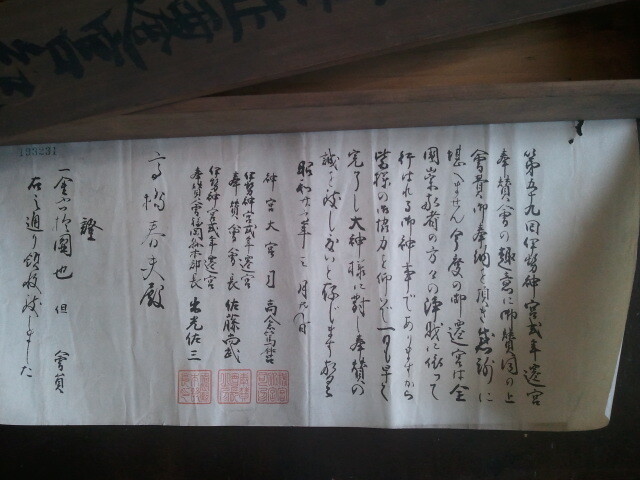 第五十九回伊勢神宮式年遷宮
奉賛会の趣意に御賛同の上
会費御奉納を頂き感謝に
堪へません今度の御遷宮は全
国崇敬者の方々の浄財に依って
行はれる御神事でありますから
皆様の御協力を仰いで一日も早く
完了し大神様に対し奉賛の
誠を致し度いと存じます
昭和 年 月 日
神宮大宮司
伊勢神宮式年遷宮
奉賛会会長 佐藤尚武
伊勢神宮式年遷宮
奉賛会福岡県本部長 出光佐三
高橋春夫殿
證
一金 圓也 但 会員
右之通り領収致しました